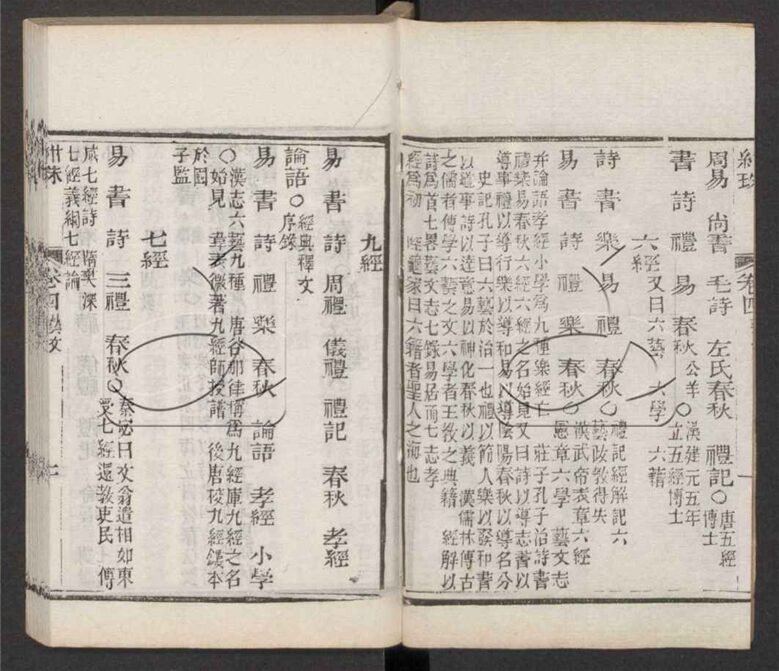 紺珠 卷四 一
周易 尚書 毛詩 左氏春秋 禮記○唐五經博士
書 詩 禮 易 春秋公羊○漢建元五年立五經博士
六經 又曰六藝 六學 六籍
詩 書 樂 易 禮 春秋○禮記經解記六藝政教得失
易 書 詩 禮 樂 春秋○漢武帝表章六經 憲章六學 藝文志
并論語孝經小學為九種樂經亡 莊子孔子治詩書
禮樂易春秋六經六經之名始見又曰詩以導志書以
導事禮以導行樂以導和易以導陰陽春秋以導名分
史記孔子曰六藝於治一也禮以節人樂以發和書
以道事詩以達意易以神化春秋以義 漢儒林傳古
之儒者傳學六藝之文六學者王教之典籍 經解以
詩為首七畧藝文志七錄易居前七志孝
經為初 家曰六籍者聖人之 也
九經
易 書 詩 周禮 儀禮 禮記 春秋 孝經
論語○經典釋文序錄
易 書 詩 禮 樂 春秋 論語 孝經 小學
○漢志六藝九種 唐谷那律稱為九經庫九經之名
始見 韋表微著九經師授譜 後唐校九經鏤本
於國子監
七經
易 書 詩 三禮 春秋○秦宓曰文翁遣相如東受七經還教吏民 傅
咸七經詩 隋樊深七經義綱七經論
紺珠 卷四藝文 二